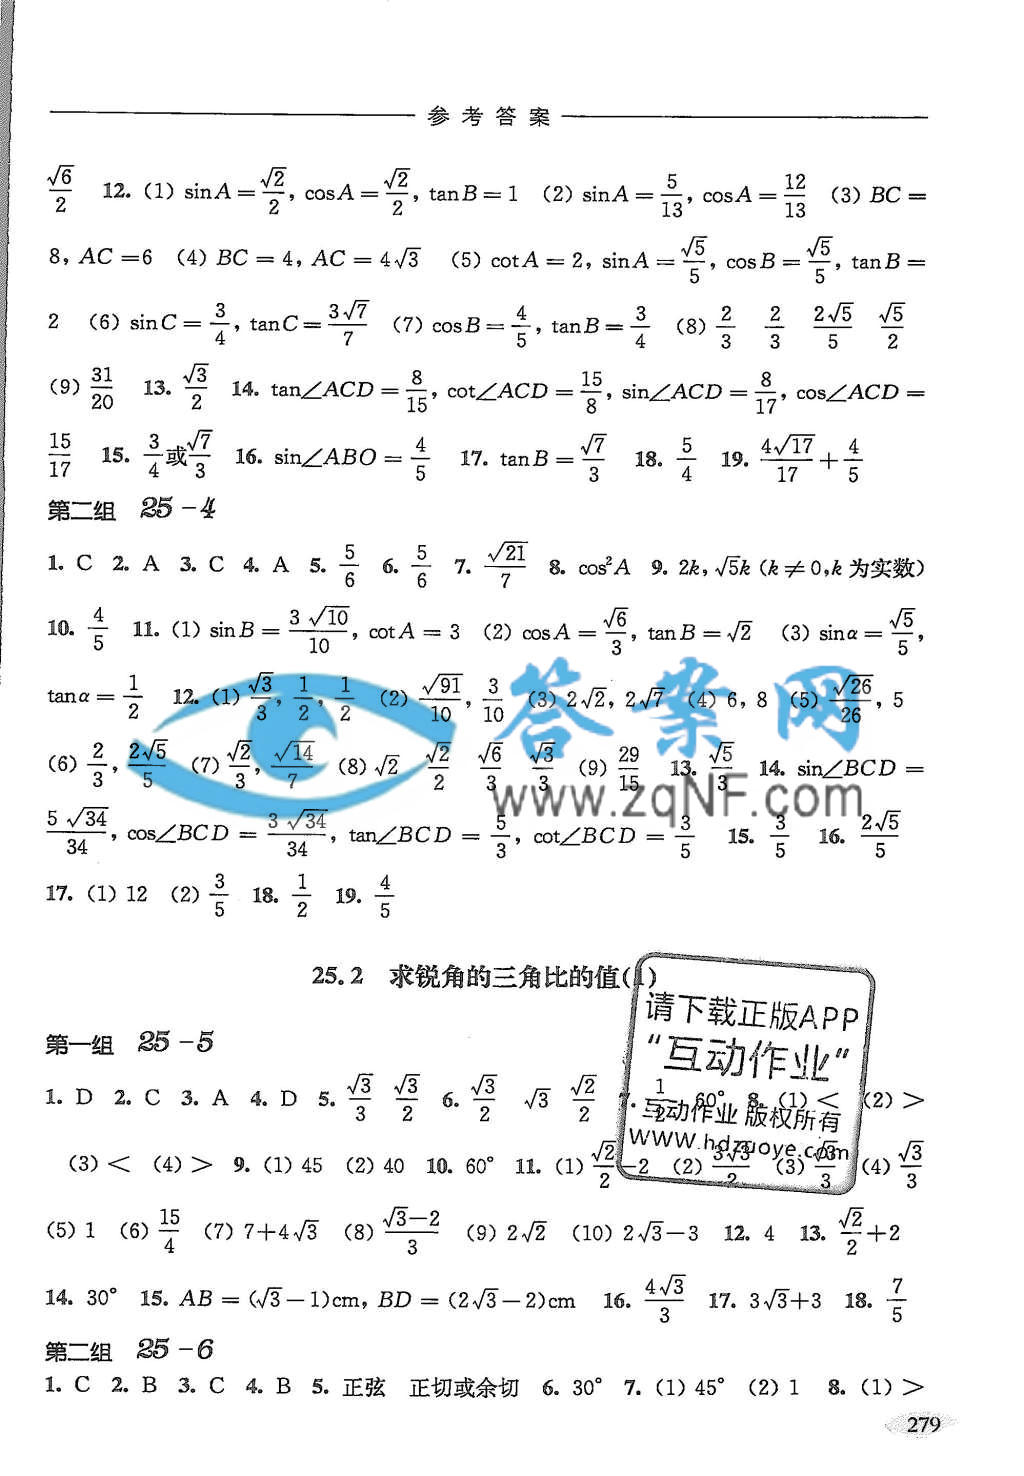 参考答案
√6/2 12. (1) sinA=√2/2, cosA=√2/2, tanB=1 (2) sinA=5/13, cosA=12/13 (3) BC=
8, AC=6 (4) BC=4, AC=4√3 (5) cotA=2, sinA=√5/5, cosB=√5/5, tanB=
2 (6) sinC=3/4, tanC=3√7/7 (7) cosB=4/5, tanB=3/4 (8) 2/3 2/3 2√5/5 √5/2
(9) 31/20 13. √3/2 14. tan∠ACD=8/15, cot∠ACD=15/8, sin∠ACD=8/17, cos∠ACD=
15/17 15. 3/4或√7/3 16. sin∠ABO=4/5 17. tanB=√7/3 18. 5/4 19. 4√17/17+4/5
第二组 25-4
1. C 2. A 3. C 4. A 5. 5/6 6. 5/6 7. √21/7 8. cos²A 9. 2k, √5k (k≠0,k为实数)
10. 4/5 11. (1) sinB=3√10/10, cotA=3 (2) cosA=√6/3, tanB=√2 (3) sinα=√5/5,
tanα=1/2 12. (1) √3/3, 1/2, 1/2 (2) √91/10, 3/10 (3) 2√2, 2√7 (4) 6, 8 (5) √26/26, 5
(6) 2/3, 2√5/5 (7) √2/3, √14/7 (8) √2 √2/2 √6/3 √3/3 (9) 29/15 13. √5/3 14. sin∠BCD=
5√34/34, cos∠BCD=3√34/34, tan∠BCD=5/3, cot∠BCD=3/5 15. 3/5 16. 2√5/5
17. (1) 12 (2) 3/5 18. 1/2 19. 4/5
答案网
www.zqNF.com
25.2 求锐角的三角比的值(1)
请下载正版APP
“互动作业”
互动作业 版权所有
www.hdzuoye.com
第一组 25-5
1. D 2. C 3. A 4. D 5. √3/3 √3/2 6. √3/2 √3 √2/2 7. 1/2 60° 8. (1) < (2) >
(3) < (4) > 9. (1) 45 (2) 40 10. 60° 11. (1) √2/2-2 (2) 3√3/2 (3) √3/3 (4) √3/3
(5) 1 (6) 15/4 (7) 7+4√3 (8) √3-2/3 (9) 2√2 (10) 2√3-3 12. 4 13. √2/2+2
14. 30° 15. AB=(√3-1)cm, BD=(2√3-2)cm 16. 4√3/3 17. 3√3+3 18. 7/5
第二组 25-6
1. C 2. B 3. C 4. B 5. 正弦 正切或余切 6. 30° 7. (1) 45° (2) 1 8. (1) >
279